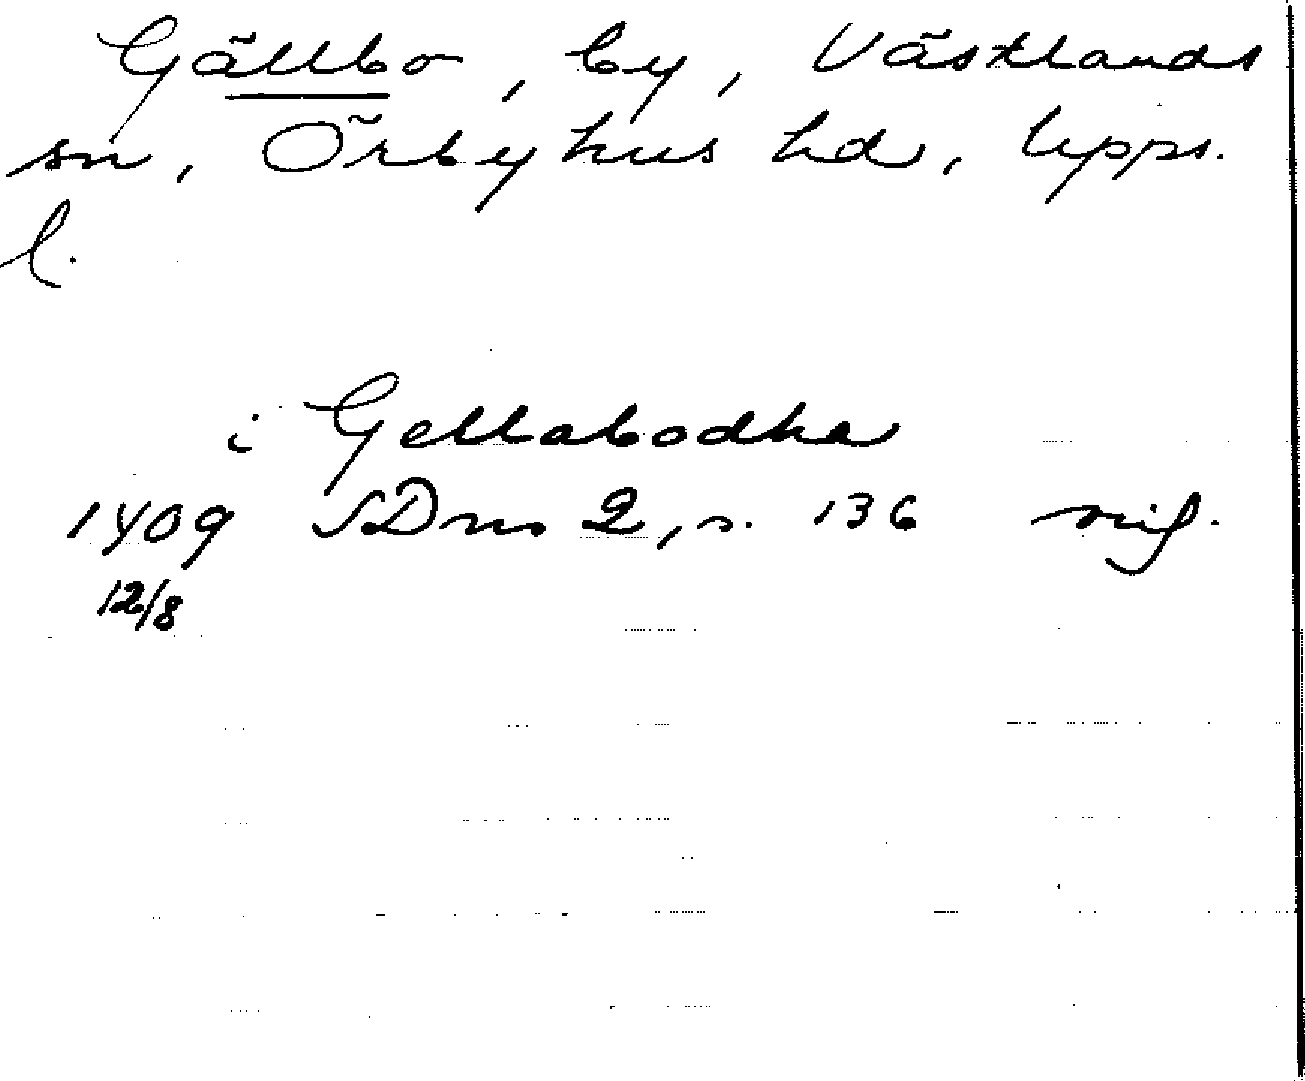 Gällbo, by, Västlands
sn, Örbyhus hd, Upps.
l.
i Gellabodha
1409 SDns 2, s. 136
12/8